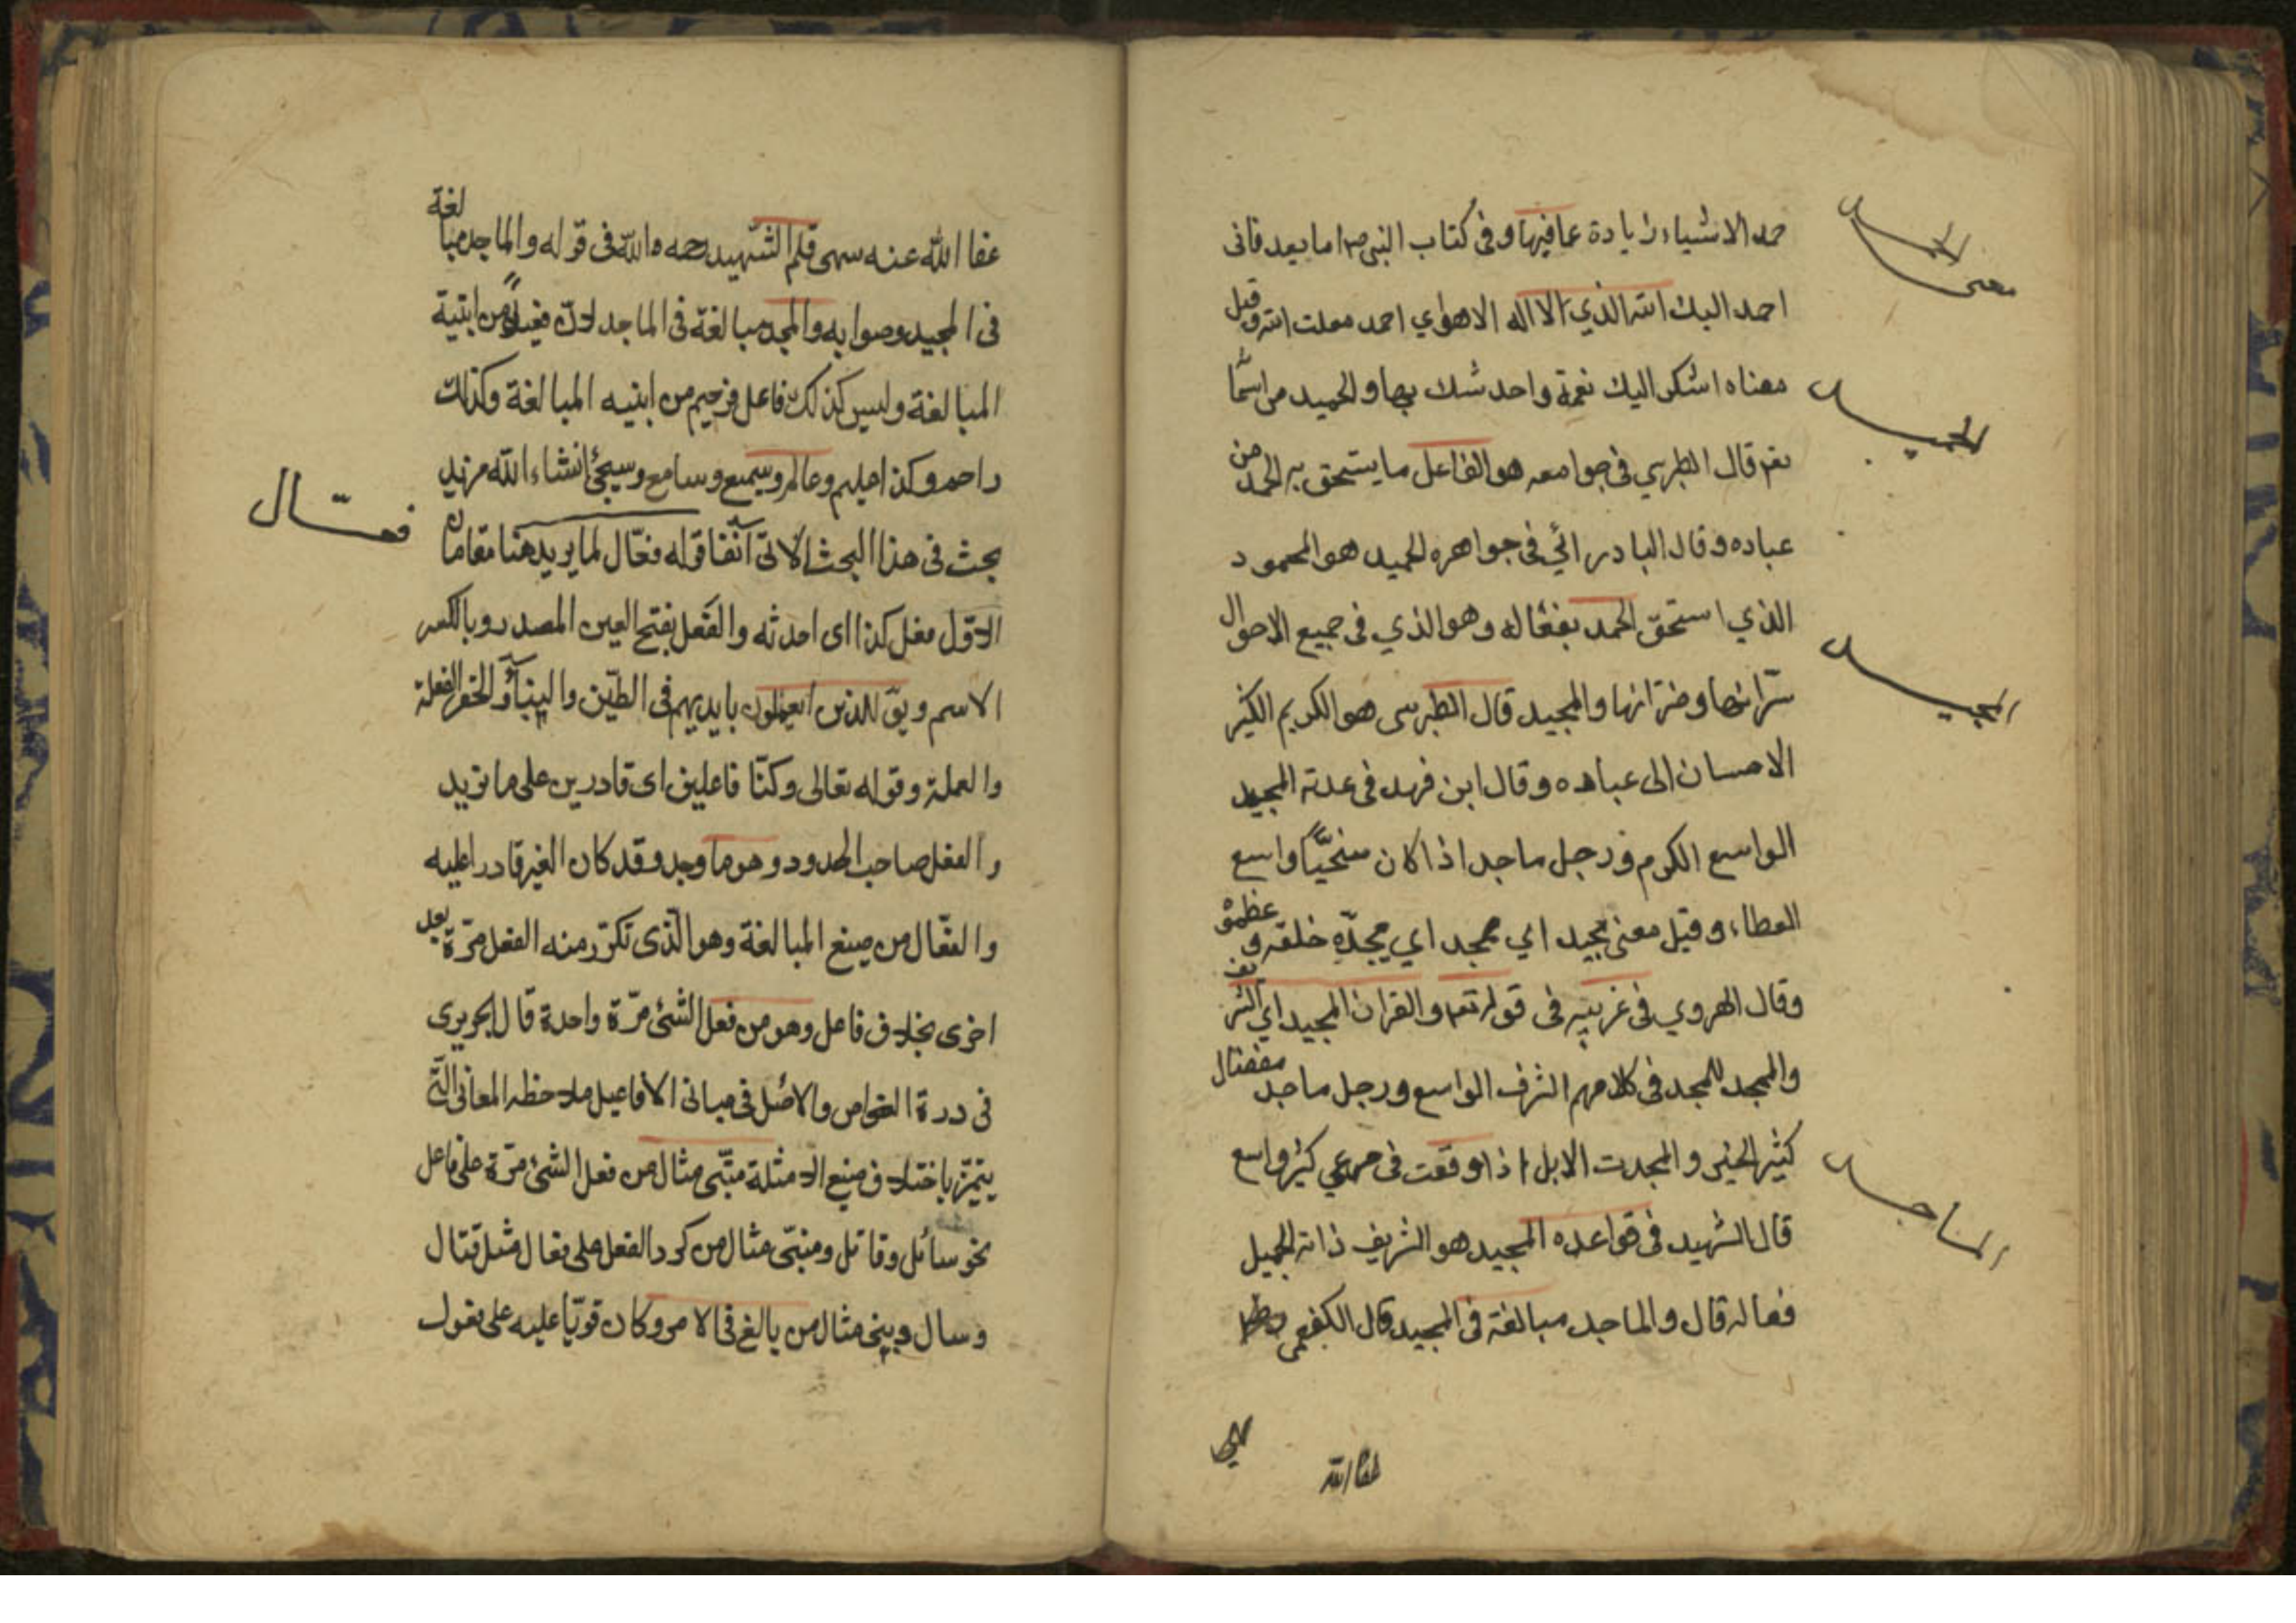 حمد الاشياء زيادة عما فيها وفى كتاب النبى ص اما بعد فانى
احمد اليك الله الذي لا اله الا هو اي احمد معك الله وقيل
معناه اشكر اليك نعمة واحدثك بها والحميد من اسما
نعم قال الطبرسي في جوامعه هو الفاعل ما يستحق به الحمد من
عباده وقال البادرائي فى جواهره الحميد هو المحمود
الذي استحق الحمد بفعاله وهو الذي فى جميع الاحوال
سرائها وضرائها والمجيد قال الطبرسى هو الكريم الكثير
الاحسان الى عباده وقال ابن فهد فى عدته المجيد
الواسع الكرم ورجل ماجد اذا كان سخيًّا واسع
العطاء وقيل معنى مجيد اي ممجد اي مجّده خلقه وعظموه
وقال الهروي فى غريبيه فى قوله تعم والقران المجيد اي الشريف
والمجد فى كلامهم الشرف الواسع ورجل ماجد مفضال
كثير الخير والمجدت الابل اذا وقعت فى مرعي كثير واسع
قال الشهيد فى قواعده المجيد هو الشريف ذاته الجميل
فعاله قال والماجد مبالغة فى المجيد قال الكفعمى
عفا الله
المجيد
الماجد
عفا الله عنه سهى قلم الشّهيد رحمه الله فى قوله والماجد مبالغة
فى المجيد وصوابه والمجيد مبالغة فى الماجد لانّ فعيلاً من ابنية
المبالغة وليس كذلك فاعل فرحيم من ابنيه المبالغة وكذلك
راحم وكذا عليم وعالم وسميع وسامع وسيجئ انشاء الله مزيد
بحث فى هذا البحث الاتى آنفا قوله فعّال لما يريد هنا مقامان
الاوّل فعل كذا اى احدثه والفَعل بفتح العين المصدر وبالكسر
الاسم ويق للذين يعملون بايديهم فى الطّين والبناء والحفر الفعلة
والعملة وقوله تعالى وكنّا فاعلين اى قادرين على ما نريد
والفعل صاحب الحدود وهو ما وجد وقد كان الغير قادرا عليه
والفعّال من صيغ المبالغة وهو الّذى تكرّر منه الفعل مرّة بعد
اخرى بخلاف فاعل وهو من فعل الشئ مرّة واحدة قال الحريرى
فى درة الغواص والاصل فى مبانى الافاعيل ملاحظه المعانى الّتى
يتميّز باختلاف صيغ الامثلة مبنى مثال من فعل الشئ مرّة على فاعل
نحو سائل وقاتل ومبنى مثال من كرر الفعل على فعال مثل قتال
وسال وبينى مثال من بالغ فى الامر وكان قويّا عليه على فعول
فعّال